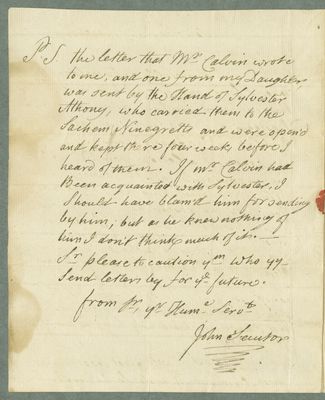 P S. the letter that Mr Calvin wrote
to me, and one from my Daughter
was sent by the Hand of Sylvester
Athony, who carried them to the
Sachem Ninegretts and were opend
and kept there four weeks before I
heard of them. If mr Calvin had
Been acquainted with Sylvester, I
Should have blam'd him for sending
by him; but as he knew nothing of
him I don't think much of it. —
Sr please to caution ym who yy
Send letters by for ye future.
from Sr, yr Hume Servt
John Shattock